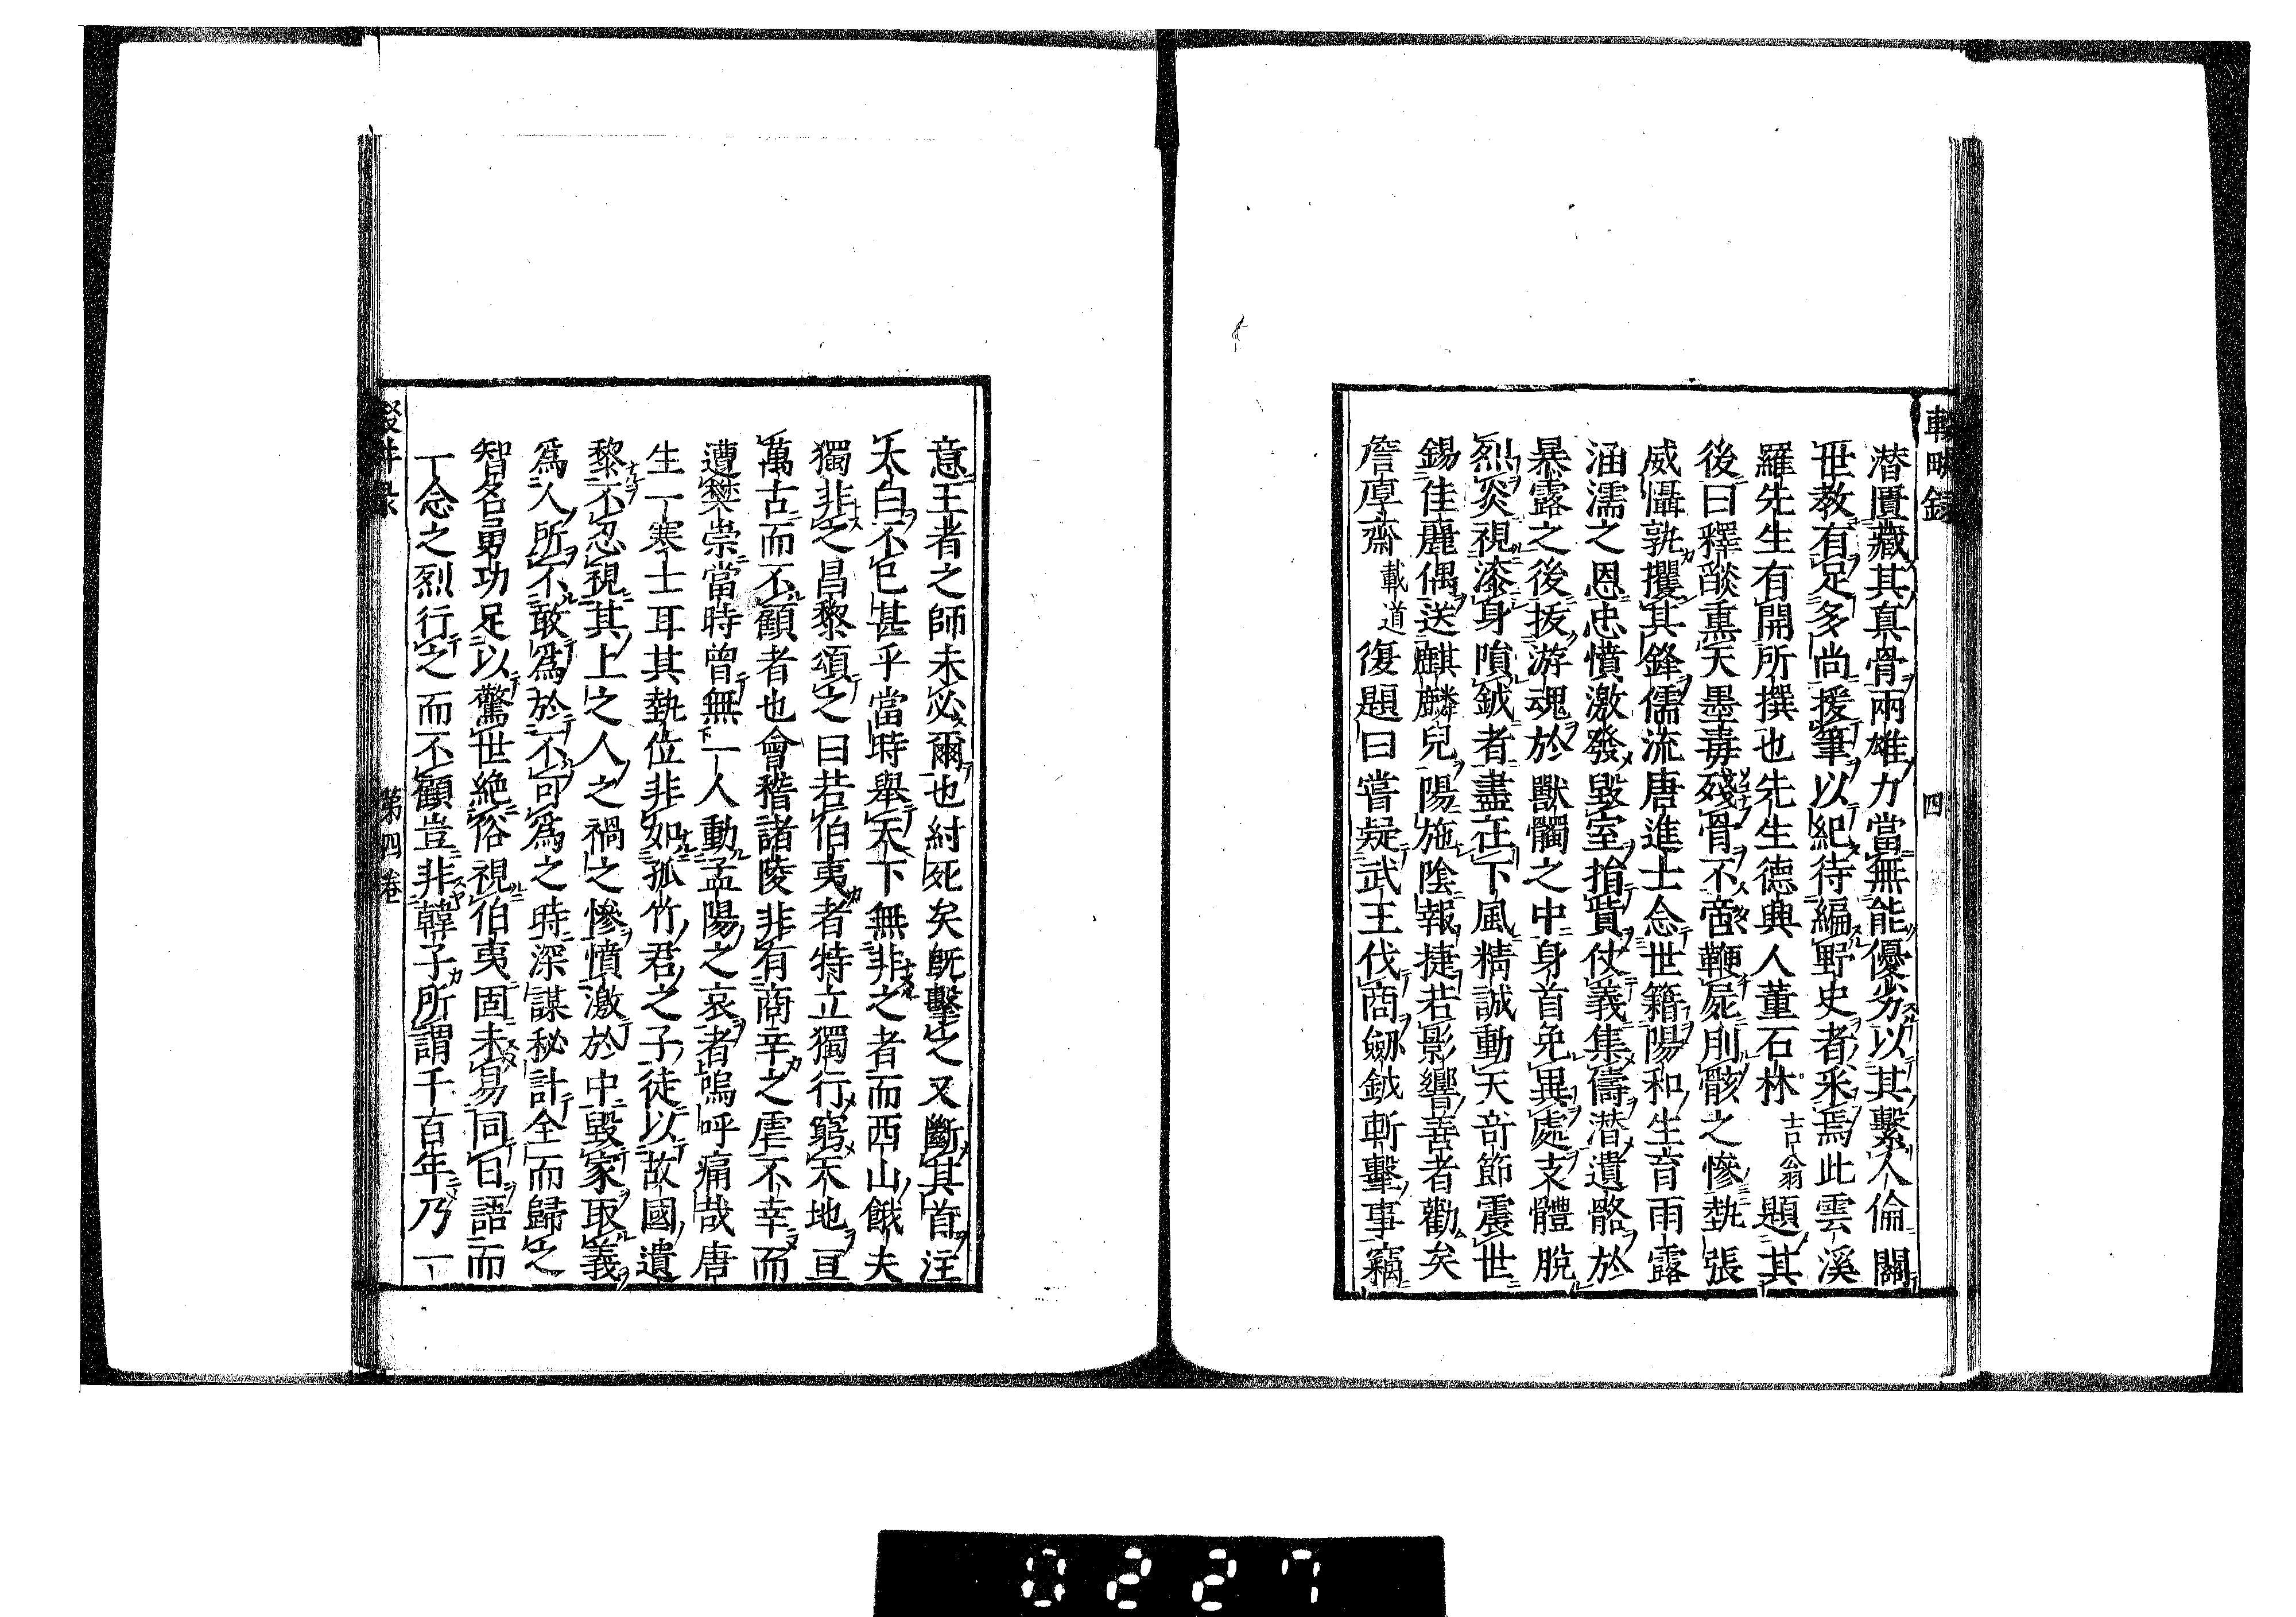 輟畊錄 四
潛匵藏其真骨兩雄力當無能優劣以其繫人倫關
世教有足多尚援筆以紀待編野史者采焉此雲溪
羅先生有開所撰也先生德典人董石林吉翁題其
後曰釋燄熏天墨毒殘骨不啻鞭屍刖骸之慘埶張
威懾孰攖其鋒儒流唐進士念世籍陽和生育雨露
涵濡之恩忠憤激發毀室捐貲仗義集儔潛遺骼於
暴露之後拔游魂於獸髑之中身首免異處支體脫
烈炎視漆身隕鉞者盡在下風精誠動天竒節震世
錫佳麗偶送麒麟兒陽施陰報捷若影響善者勸矣
詹厚齋載道復題曰嘗疑武王伐商劒鉞斬擊事竊
意王者之師未必爾也紂死矣旣擊之又斷其首注
大白不已甚乎當時舉天下無非之者而西山餓夫
獨非之昌黎頌之曰若伯夷者特立獨行窮天地亘
萬古而不顧者也會稽諸陵非有商辛之虐不幸而
遭樊崇當時曾無一人動孟陽之哀者嗚呼痛哉唐
生一寒士耳其埶位非如孤竹君之子徒以故國遺
黎不忍視其上之人之禍之慘憤激於中毀家取義
爲人所不敢爲於不可爲之時深謀秘計全而歸之
智名勇功足以驚世絶俗視伯夷固未易同日語而
一念之烈行之而不顧豈非韓子所謂千百年乃一
輟畊錄 第四卷
0227